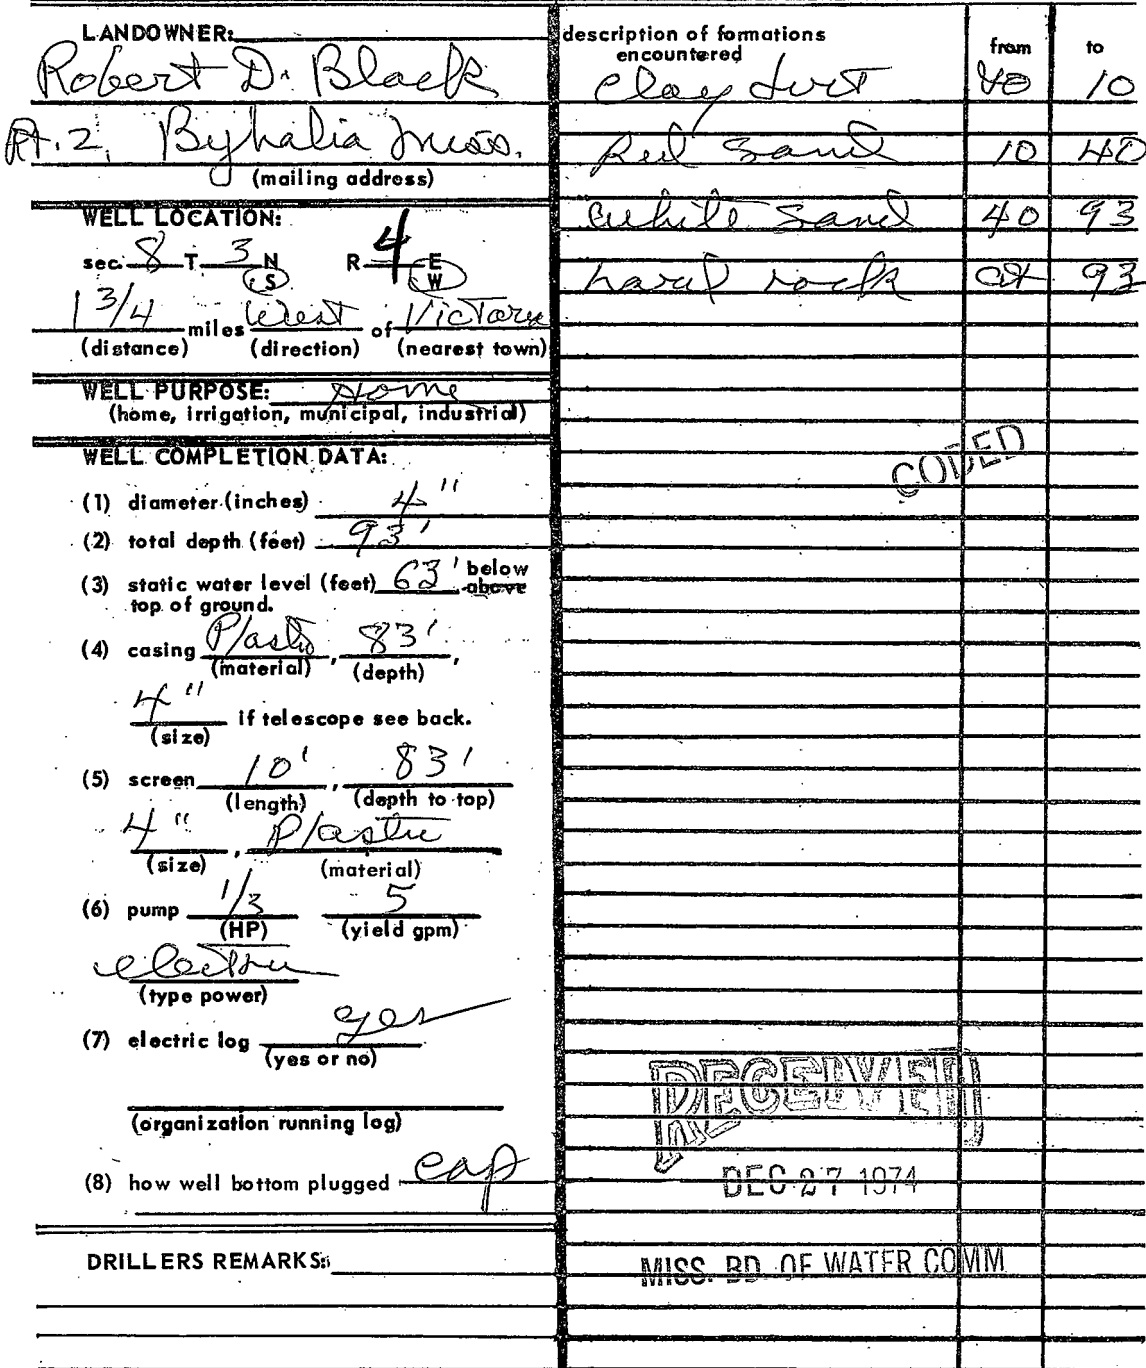 LANDOWNER:
Robert D. Black
Rt. 2, Byhalia Miss.
(mailing address)
WELL LOCATION:
sec. 8 T. 3 N R 4 E
S W
1 3/4 miles West of Victoria
(distance) (direction) (nearest town)
WELL PURPOSE: Home
(home, irrigation, municipal, industrial)
WELL COMPLETION DATA:
(1) diameter (inches) 4"
(2) total depth (feet) 93'
(3) static water level (feet) 63' below
above
top of ground.
(4) casing Plastic, 83',
(material) (depth)
4" if telescope see back.
(size)
(5) screen 10', 83'
(length) (depth to top)
4", Plastic
(size) (material)
(6) pump 1/3 5
(HP) (yield gpm)
electric
(type power)
(7) electric log yes
(yes or no)
(organization running log)
(8) how well bottom plugged cap
DRILLERS REMARKS:
description of formations
encountered from to
clay dirt 10
Red Sand 10 40
white Sand 40 93
hard rock at 93
CODED
RECEIVED
DEC 27 1974
MISS. BD. OF WATER COMM